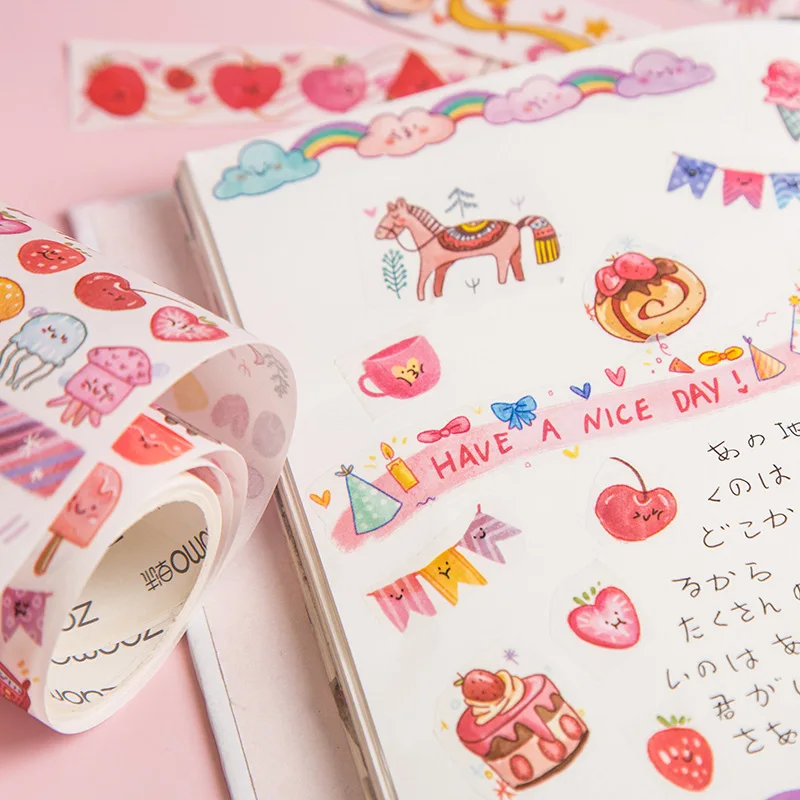 HAVE A NICE DAY!
あの地
くのは
どこか
るから
たくさん
いのは あ
君が
さあ